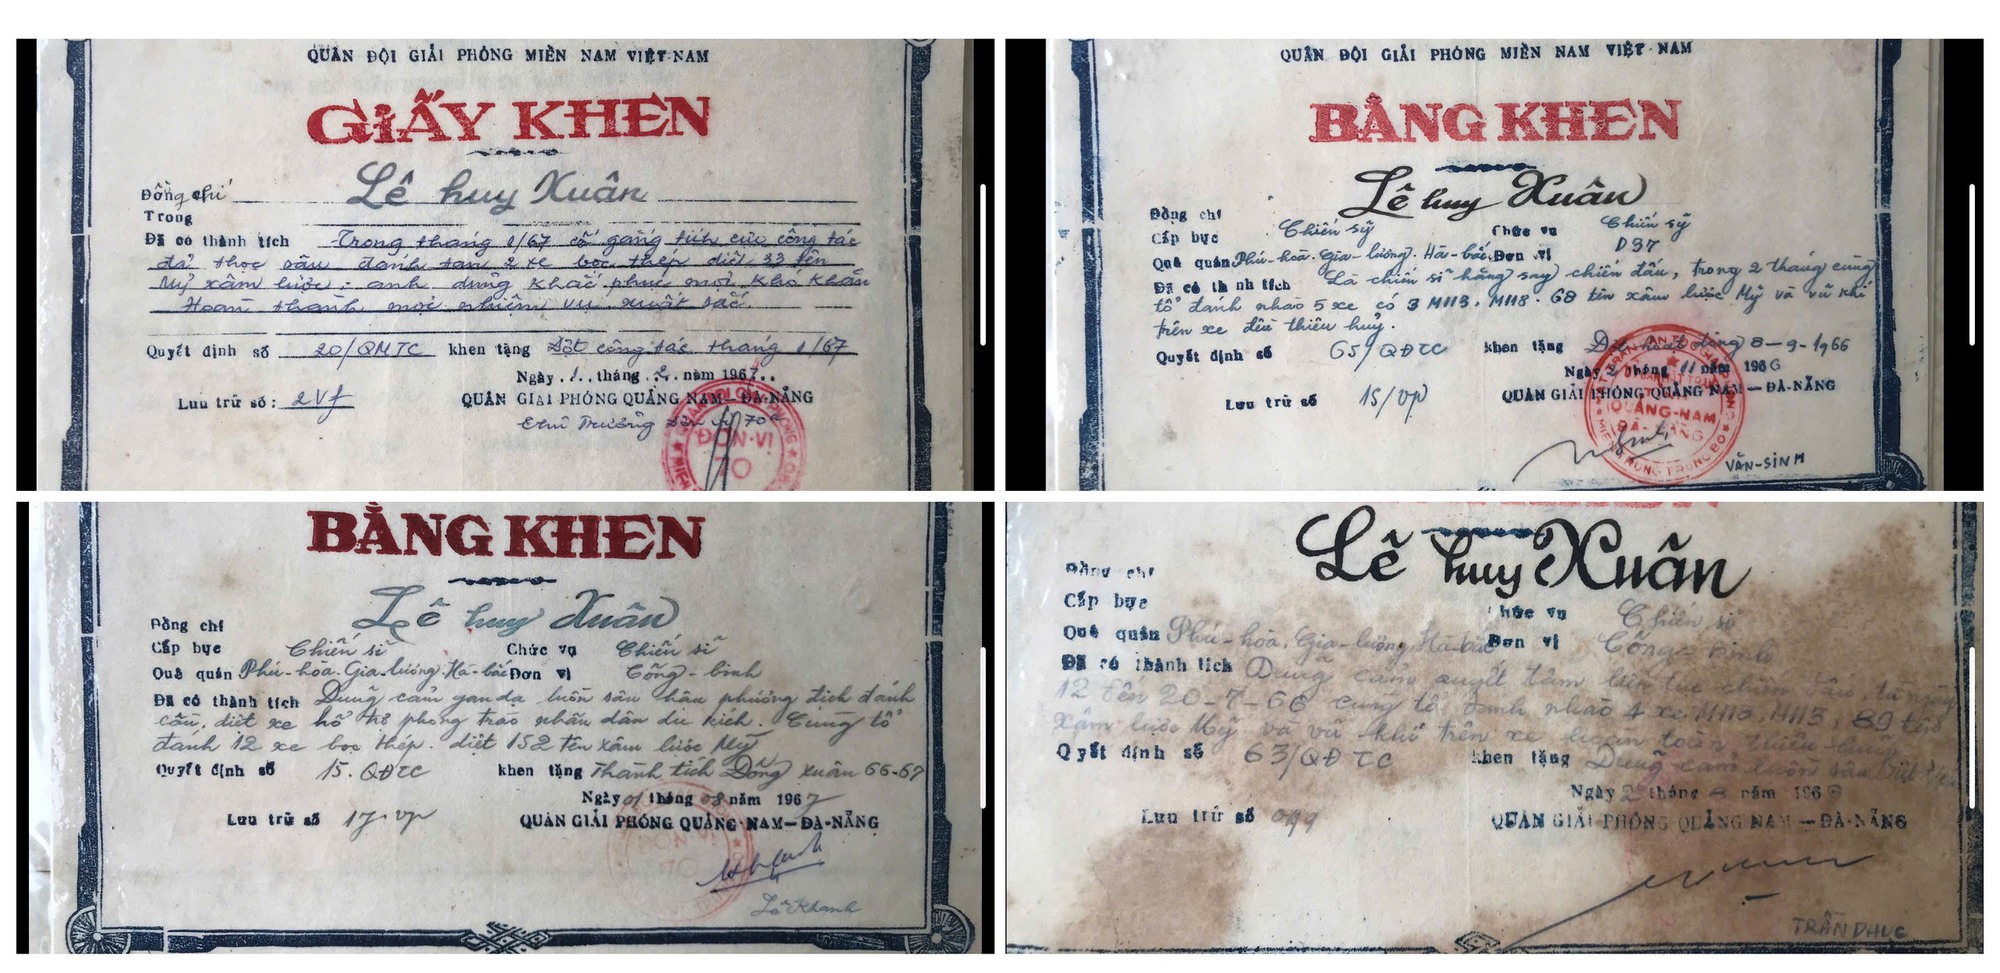 QUÂN ĐỘI GIẢI PHÓNG MIỀN NAM VIỆT-NAM
GIẤY KHEN
Đồng chí Lê huy Xuân
Trong
Đã có thành tích Trong tháng 1/67 cố gắng tích cực công tác
đã thọc sâu đánh tan 2 xe bọc thép diệt 33 tên
Mỹ xâm lược. anh dũng khắc phục mọi khó khăn
Hoàn thành mọi nhiệm vụ xuất sắc.
Quyết định số 20/QMTC khen tặng Đợt công tác tháng 1/67
Ngày 1. tháng 2. năm 1967.
Lưu trữ số: 2Vf QUÂN GIẢI PHÓNG QUẢNG NAM-ĐÀ-NẴNG
Thủ Trưởng Đơn vị 70
ĐƠN-VỊ
70
QUÂN ĐỘI GIẢI PHÓNG MIỀN NAM VIỆT-NAM
BẰNG KHEN
Đồng chí Lê huy Xuân
Cấp bực Chiến sỹ Chức vụ Chiến sỹ
Quê quán Phú-hòa. Gia-lương. Hà-bắc Đơn vị D37
Đã có thành tích Là chiến sĩ hăng say chiến đấu, trong 2 tháng cùng
tổ đánh nhào 5 xe có 3 M113. M118. 68 tên xâm lược Mỹ và vũ khí
trên xe đều thiêu huỷ.
Quyết định số 65/QĐTC khen tặng Đợt hoạt động 8-9-1966
Ngày 2 tháng 11 năm 1966
Lưu trữ số 15/vp QUÂN GIẢI PHÓNG QUẢNG NAM-ĐÀ-NẴNG
QUẢNG-NAM
ĐÀ-NẴNG
VĂN-SINH
BẰNG KHEN
Đồng chí Lê huy Xuân
Cấp bực Chiến sĩ Chức vụ Chiến sĩ
Quê quán Phú-hòa. Gia-lương. Hà-bắc Đơn vị Công-binh
Đã có thành tích Dũng cảm gan dạ luôn sâu hậu phương địch đánh
cầu, diệt xe hổ trợ phong trào nhân dân du kích. Cùng tổ
đánh 12 xe bọc thép. diệt 152 tên xâm lược Mỹ
Quyết định số 15. QĐTC khen tặng Thành tích Đông xuân 66-67
Ngày 01 tháng 08 năm 1967
Lưu trữ số 17-vp QUÂN GIẢI PHÓNG QUẢNG NAM-ĐÀ-NẴNG
Lê Khanh
Lê huy Xuân
Đồng chí
Cấp bực Chức vụ Chiến sĩ
Quê quán Phú-hòa, Gia-lương, Hà-bắc Đơn vị Công-binh
Đã có thành tích Dũng cảm quyết tâm liên tục chiến đấu, từ ngày
12 đến 20-7-66 cùng tổ đánh nhào 4 xe M118, M113, 89 tên
xâm lược Mỹ và vũ khí trên xe hoàn toàn thiêu huỷ
Quyết định số 63/QĐTC khen tặng Dũng cảm luôn sâu
Ngày 2 tháng 8 năm 1966
Lưu trữ số 099 QUÂN GIẢI PHÓNG QUẢNG NAM-ĐÀ-NẴNG
TRẦN PHỤC